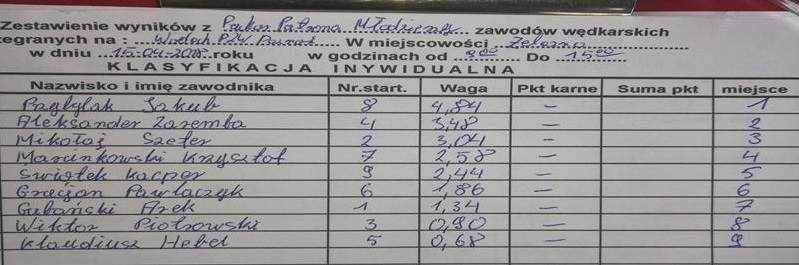 Zestawienie wyników z Puchar Patrona Młodzieży zawodów wędkarskich
zegranych na : Wodach PZW Poznań W miejscowości Żelazno
w dniu 15-04-2018 roku w godzinach od 9°° Do 15°°
KLASYFIKACJA INYWIDUALNA
Nazwisko i imię zawodnika Nr.start. Waga Pkt karne Suma pkt miejsce
Przybylak Jakub 8 4,84 — 1
Aleksander Zaremba 4 3,48 — 2
Mikołaj Szefer 2 3,04 — 3
Marcinkowski Krzysztof 7 2,58 — 4
Świątek Kacper 9 2,44 — 5
Gracjan Pawlaczyk 6 1,86 — 6
Gubański Arek 1 1,34 — 7
Wiktor Piotrowski 3 0,90 — 8
Klaudiusz Hebel 5 0,68 — 9